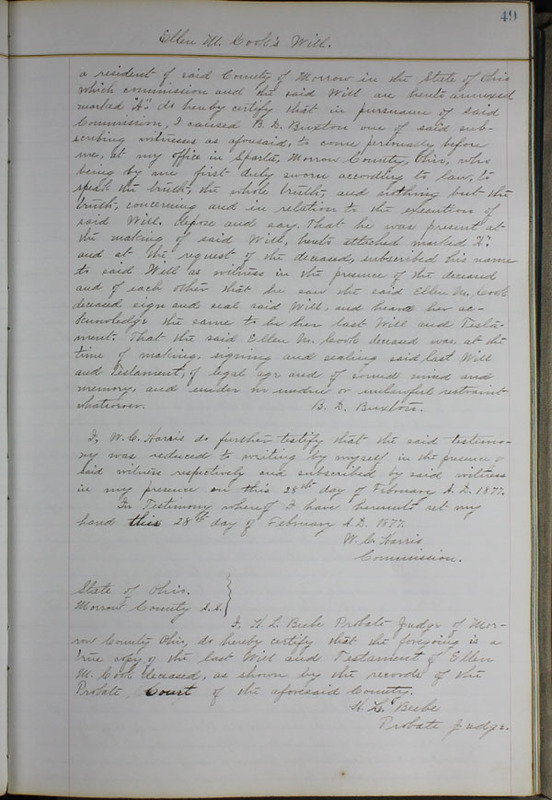 49
Ellen M. Cook's Will.
a resident of said County of Morrow in the State of Ohio
which commission and the said Will are hereto annexed
marked "A". do hereby certify that in pursuance of said
Commission, I caused B. D. Buxton one of said sub-
scribing witnesses as aforesaid, to come personally before
me, at my office in Sparta, Morrow County, Ohio, who
being by me first duly sworn according to law, to
speak the truth, the whole truth, and nothing but the
truth, concerning and in relation to the execution of
said Will. depose and say. That he was present at
the making of said Will, hereto attached marked "A".
and at the request of the deceased, subscribed his name
to said Will as witness in the presence of the deceased
and of each other that he saw the said Ellen M. Cook
deceased sign and seal said Will, and heard her ac-
knowledge the same to be her last Will and Testa-
ment. That the said Ellen M. Cook deceased was at the
time of making, signing and sealing said last Will
and Testament, of legal age and of sound mind and
memory, and under no undue or unlawful restraint
whatsoever. B. D. Buxton.
I, W. C. Harris do further testify that the said testimo-
ny was reduced to writing by myself in the presence of
said witness respectively and subscribed by said witness
in my presence on this 28th day of February A. D. 1877.
In Testimony whereof I have hereunto set my
hand this 28th day of February A. D. 1877.
W. C. Harris
Commission.
State of Ohio.
Morrow County S.S.
I, H. L. Beebe Probate Judge of Mor-
row County Ohio, do hereby certify that the foregoing is a
true copy of the last Will and Testament of Ellen
M. Cook deceased, as shown by the records of the
Probate Court of the aforesaid County.
H. L. Beebe
Probate Judge.